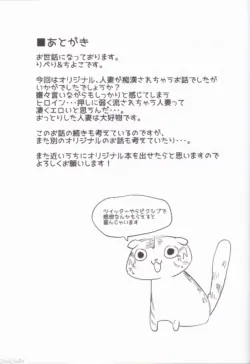 ■あとがき
お世話になっております。
りぺり&ちよこです。
今回はオリジナル、人妻が痴漢されちゃうお話でしたが
いかがでしたでしょうか?
嫌々言いながらもしっかりと感じてしまう
ヒロイン・・・押しに弱く流されちゃう人妻って
凄くエロいと思うんだ・・・。
おっとりした人妻は大好物です。
このお話の続きも考えているのですが、
また別のオリジナルのお話も考えていたり・・・。
また近いうちにオリジナル本を出せたらと思いますので
よろしくお願いします!
ツイッターやらピクシブで
感想なんかもらえると
喜んじゃいます